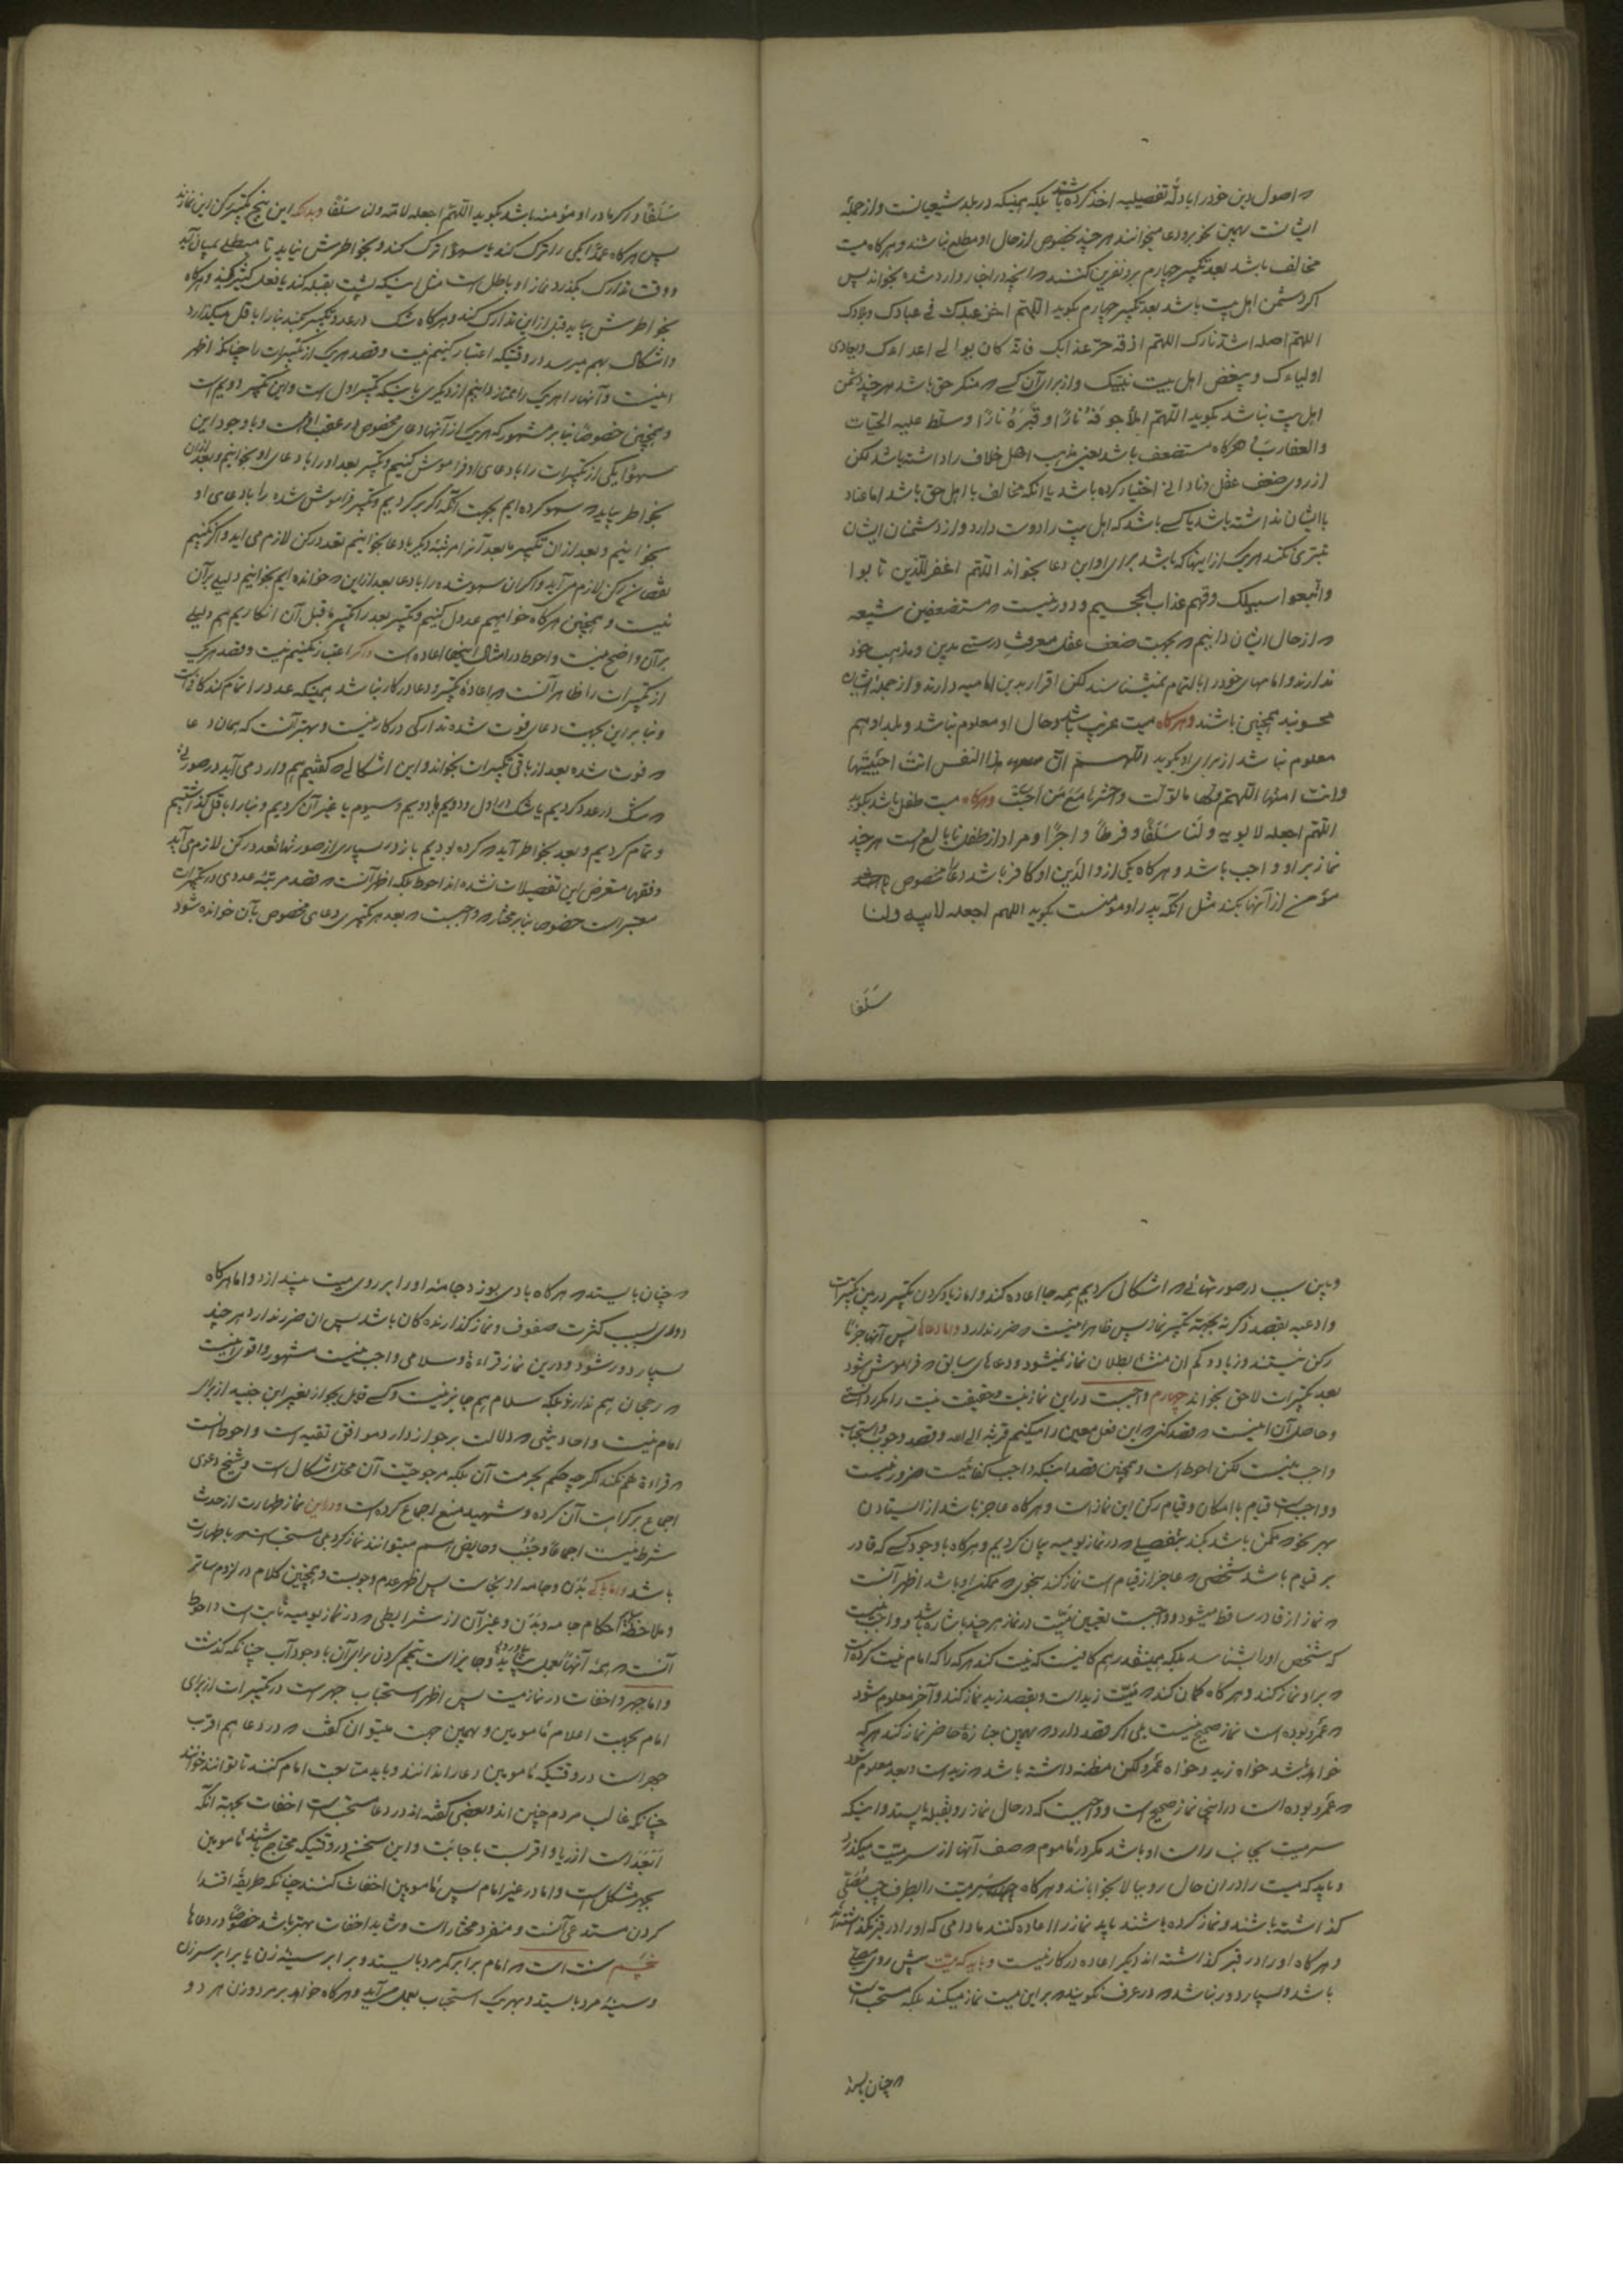 که اصول دین خود را بادلّه تفصیلیه اخذ کرده باشند بلکه همینکه در بلد شیعیانست و از جمله
ایشانست بهمین نحو برو دعا میخوانند هر چند بخصوص از حال او مطلع نباشند و هرکاه میت
مخالف باشد بعد تکبیر چهارم برو نفرین کنند که آنچه در اخبار وارد شده بخواند پس
اکر دشمن اهل بیت باشد بعد تکبیر چهارم بکوید اللهم اخز عبدک فی عبادک وبلادک
اللهم اصله اشد نارک اللهم اذقه حر عذابک فانه کان یوالی اعداءک ویعادی
اولیاءک ویبغض اهل بیت نبیک و از برای آن کسی که منکر حق باشد هر چند دشمن
اهل بیت نباشد بکوید اللهم املأ جوفه نارًا وقبره نارًا وسلط علیه الحیات
والعقارب هرکاه مستضعف باشد یعنی مذهب اهل خلاف را داشته باشد لکن
از روی ضعف عقل و نادانی اختیار کرده باشد یا آنکه مخالف با اهل حق باشد اما عناد
با ایشان نداشته باشد یا کسی باشد که اهل بیت را دوست دارد و از دشمنان ایشان
تبری نکند هر یک از اینها که باشد برای او این دعا بخواند اللهم اغفر للذین تابوا
واتبعوا سبیلک وقهم عذاب الجحیم و دور نیست که مستضعفین شیعه
که از حال ایشان دانیم که بجهت ضعف عقل معرفت درستی بدین و مذهب خود
ندارند و امامهای خود را بالتمام نمیشناسند لکن اقرار بدین امامیه دارند و از جمله ایشان
محسوبند همچنین باشند و هرکاه میت غریب باشد و حال او معلوم نباشد و بلد او هم
معلوم نباشد از برای او بکوید اللهم ان هذا النفس انت احییتها
وانت امتها اللهم ولها ما تولت واحشرها مع من احبت و هرکاه میت طفل باشد بکوید
اللهم اجعله لابویه ولنا سلفًا وفرطًا واجرًا و مراد از طفل نابالغ است هر چند
نماز بر او واجب باشد و هرکاه یکی از والدین او کافر باشد دعا مخصوص
مؤمن از آنها بکند مثل آنکه پدر او مؤمنست بکوید اللهم اجعله لابیه ولنا
سلفا
سلفًا و اکر مادر او مؤمنه باشد بکوید اللهم اجعله لامه ولنا سلفًا و بدانکه این پنج تکبیر رکن این نمازند
پس هرکاه عمدًا یکی را ترک کند یا سهوًا ترک کند و بخواطرش نیاید تا مبطلی بمیان آید
و وقت تدارک بگذرد نماز او باطل است مثل اینکه پشت بقبله کند یا فعل کثیر کند و هرکاه
بخواطرش بیاید قبل از این تدارک کند و هرکاه شک در عدد تکبیر کند بنا را باقل میکذارد
و اشکال بهم میرسد در وقتیکه اعتبار کنیم نیت و قصد هر یک از تکبیرات را چنانکه اظهر
اینست و آنها را هر یک را ممتاز دانیم از دیکری باینکه تکبیر اول است و این تکبیر دویم است
و همچنین خصوصًا بنا بر مشهور که هر یک از آنها دعای مخصوص در عقب او هست و با وجود این
سهوًا یکی از تکبیرات را با دعای او فراموش کنیم و تکبیر بعد او را با دعای او بخوانیم و بعد از آن
بخواطر بیاید که سهو کرده ایم بجهت آنکه اکر برکردیم و تکبیر فراموش شده را با دعای او
بخوانیم و بعد از آن تکبیر ما بعد آنرا مرتبه دیکر با دعا بخوانیم تعدد رکن لازم می آید و اکر نکنیم
نقصان رکن لازم می آید و اکر آن سهو شده را با دعا بعد از این که خوانده ایم بخوانیم دلیلی برآن
نیست و همچنین هرکاه خواهیم عدول کنیم و تکبیر بعد را تکبیر ما قبل آن انکاریم هم دلیلی
برآن واضح نیست و احوط در امثال اینجاها اعاده است و اکر اعتبار نکنیم نیت و قصد هر یک
از تکبیرات را ظاهر آنست که اعادهٔ تکبیر و دعا درکار نباشد همینکه عدد را تمام کند کافیست
و بنا براین بجهت دعای فوت شده تدارکی درکار نیست و بهتر آنست که همان دعا
که فوت شده بعد از باقی تکبیرات بخواند و این اشکالی که کفتیم هم وارد می آید در صورتی
که شک در عدد کردیم یا شک در اول و دویم یا دویم و سیوم یا غیر آن کردیم و بنا را باقل کذاشتیم
و تمام کردیم و بعد بخواطر آید که کرده بودیم باز در بسیاری از صورتها تعدد رکن لازم می آید
و فقها متعرض این تفصیلات نشده اند احوط بلکه اظهر آنست که قصد مرتبهٔ عددی در تکبیرات
معتبر است خصوصا بنا بر مختار که واجبست که بعد هر تکبیری دعای مخصوص بآن خوانده شود
و باین سبب در صورتهائی که اشکال کردیم همه جا اعاده کند و اما زیاد کردن تکبیر در بین تکبیرات
و ادعیه بقصد ذکر نه بجهة تکبیر نماز پس ظاهرا اینست که ضرر ندارد و اما دعاها پس آنها جزئا
رکن نیستند و زیاد و کم آن منشأ بطلان نماز نمیشود و دعاهای سابق که فراموش شود
بعد تکبیرات لاحق بخواند چهارم واجبست در این نماز نیت و حقیقت نیت را مکرر دانستی
و حاصل آن اینست که قصد کنی که این فعل معین را میکنیم قربة الی الله و قصد وجوب و استحباب
واجب نیست لکن احوط است و همچنین قصد اینکه واجب کفائیست ضرور نیست
و واجبست قیام با امکان و قیام رکن این نماز است و هرکاه عاجز باشد از ایستادن
بهر نحو که ممکن باشد بکند بتفصیلی که در نماز یومیه بیان کردیم و هرکاه با وجود کسی که قادر
بر قیام باشد شخصی که عاجز از قیام است نماز کند بنحوی که ممکن او باشد اظهر آنست
که نماز از قادر ساقط میشود و واجبست تعیین میت در نماز هر چند باشاره باشد و واجب نیست
که شخص او را بشناسد بلکه همینقدر هم کافیست که نیت کند هر که را که امام نیت کرده است
که بر او نماز کند و هرکاه کمان کند که میت زید است و بقصد زید نماز کند و آخر معلوم شود
که عمرو بوده است نماز صحیح نیست بلی اکر قصد دارد که بهمین جنازهٔ حاضر نماز کند هر که
خواهد باشد خواه زید و خواه عمرو لکن مظنه داشته باشد که زید است و بعد معلوم شود
که عمرو بوده است در اینجا نماز صحیح است و واجبست که در حال نماز رو بقبله بایستد و اینکه
سر میت بجانب راست او باشد مکر در مأموم که صف آنها از سر میت میکذرد
و باید که میت را در آن حال رو ببالا بخوابانند و هرکاه سر میت را بطرف چپ مصلی
کذاشته باشند و نماز کرده باشند باید نماز را اعاده کنند مادامی که او را در قبر نکذاشته اند
و هرکاه او را در قبر کذاشته اند دیکر اعاده درکار نیست و باید که میت پیش روی مصلی
باشد و بسیار دور نباشد که در عرف نکویند که بر این میت نماز میکند بلکه مستحب است
که چنان بایستد
که چنان بایستد که هرکاه بادی بوزد جامهٔ او را بر روی میت بیندازد و اما هرکاه
دوری بسبب کثرت صفوف و نماز کذارندکان باشد پس آن ضرر ندارد هر چند
بسیار دور شود و در این نماز قراءة و سلامی واجب نیست مشهور و اقوی اینست
که رجحان هم ندارد بلکه سلام هم جایز نیست و کسی قایل بجواز بغیر ابن جنید از برای
امام نیست و احادیثی که دلالت بر جواز دارد موافق تقیه است و احوط آنست
که قراءة هم نکند اکر چه حکم بحرمت آن بلکه مرجوحیّت آن محل اشکال است و شیخ دعوی
اجماع بر کراهت آن کرده و شهید منع اجماع کرده است و در این نماز طهارت از حدث
شرط نیست اجماعًا و جنب و حایض هم میتوانند نماز کرد بلی مستحب است که با طهارت
باشد و اما پاکی بدن و جامه از نجاست پس اظهر عدم وجوبست و همچنین کلام در لزوم ساتر
و ملاحظهٔ احکام جامه و بدن و غیر آن از شرایطی که در نماز یومیه ثابت است و احوط
آنست که همهٔ آنها بعمل بیاورد و جایز است تیمم کردن برای آن با وجود آب چنانکه کذشت
و اما جهر و اخفات در نماز میت پس اظهر استحباب جهر است در تکبیرات از برای
امام بجهت اعلام مأمومین و بهمین جهت میتوان کفت که در دعا هم اقرب
جهر است در وقتیکه مأمومین دعا را ندانند و باید متابعت امام کنند تا توانند خوانند
چنانکه غالب مردم چنین اند و بعضی کفته اند در دعا مستحب است اخفات بجهة آنکه
ابعد است از ریا و اقربست باجابت و این سخن در وقتیکه محتاج باشند مأمومین
بجهر مشکل است و اما در غیر امام پس مأمومین اخفات کنند چنانکه طریقهٔ اقتدا
کردن مستدعی آنست و منفرد مختار است و شاید اخفات بهتر باشد خصوصًا در دعاها
پنجم سنت است که امام برابر کمر مرد بایستد و برابر سینهٔ زن یا برابر سر زن
و سینهٔ مرد بایستد و بهر یک استحباب بعمل می آید و هرکاه خواهد بر مرد و زن هر دو